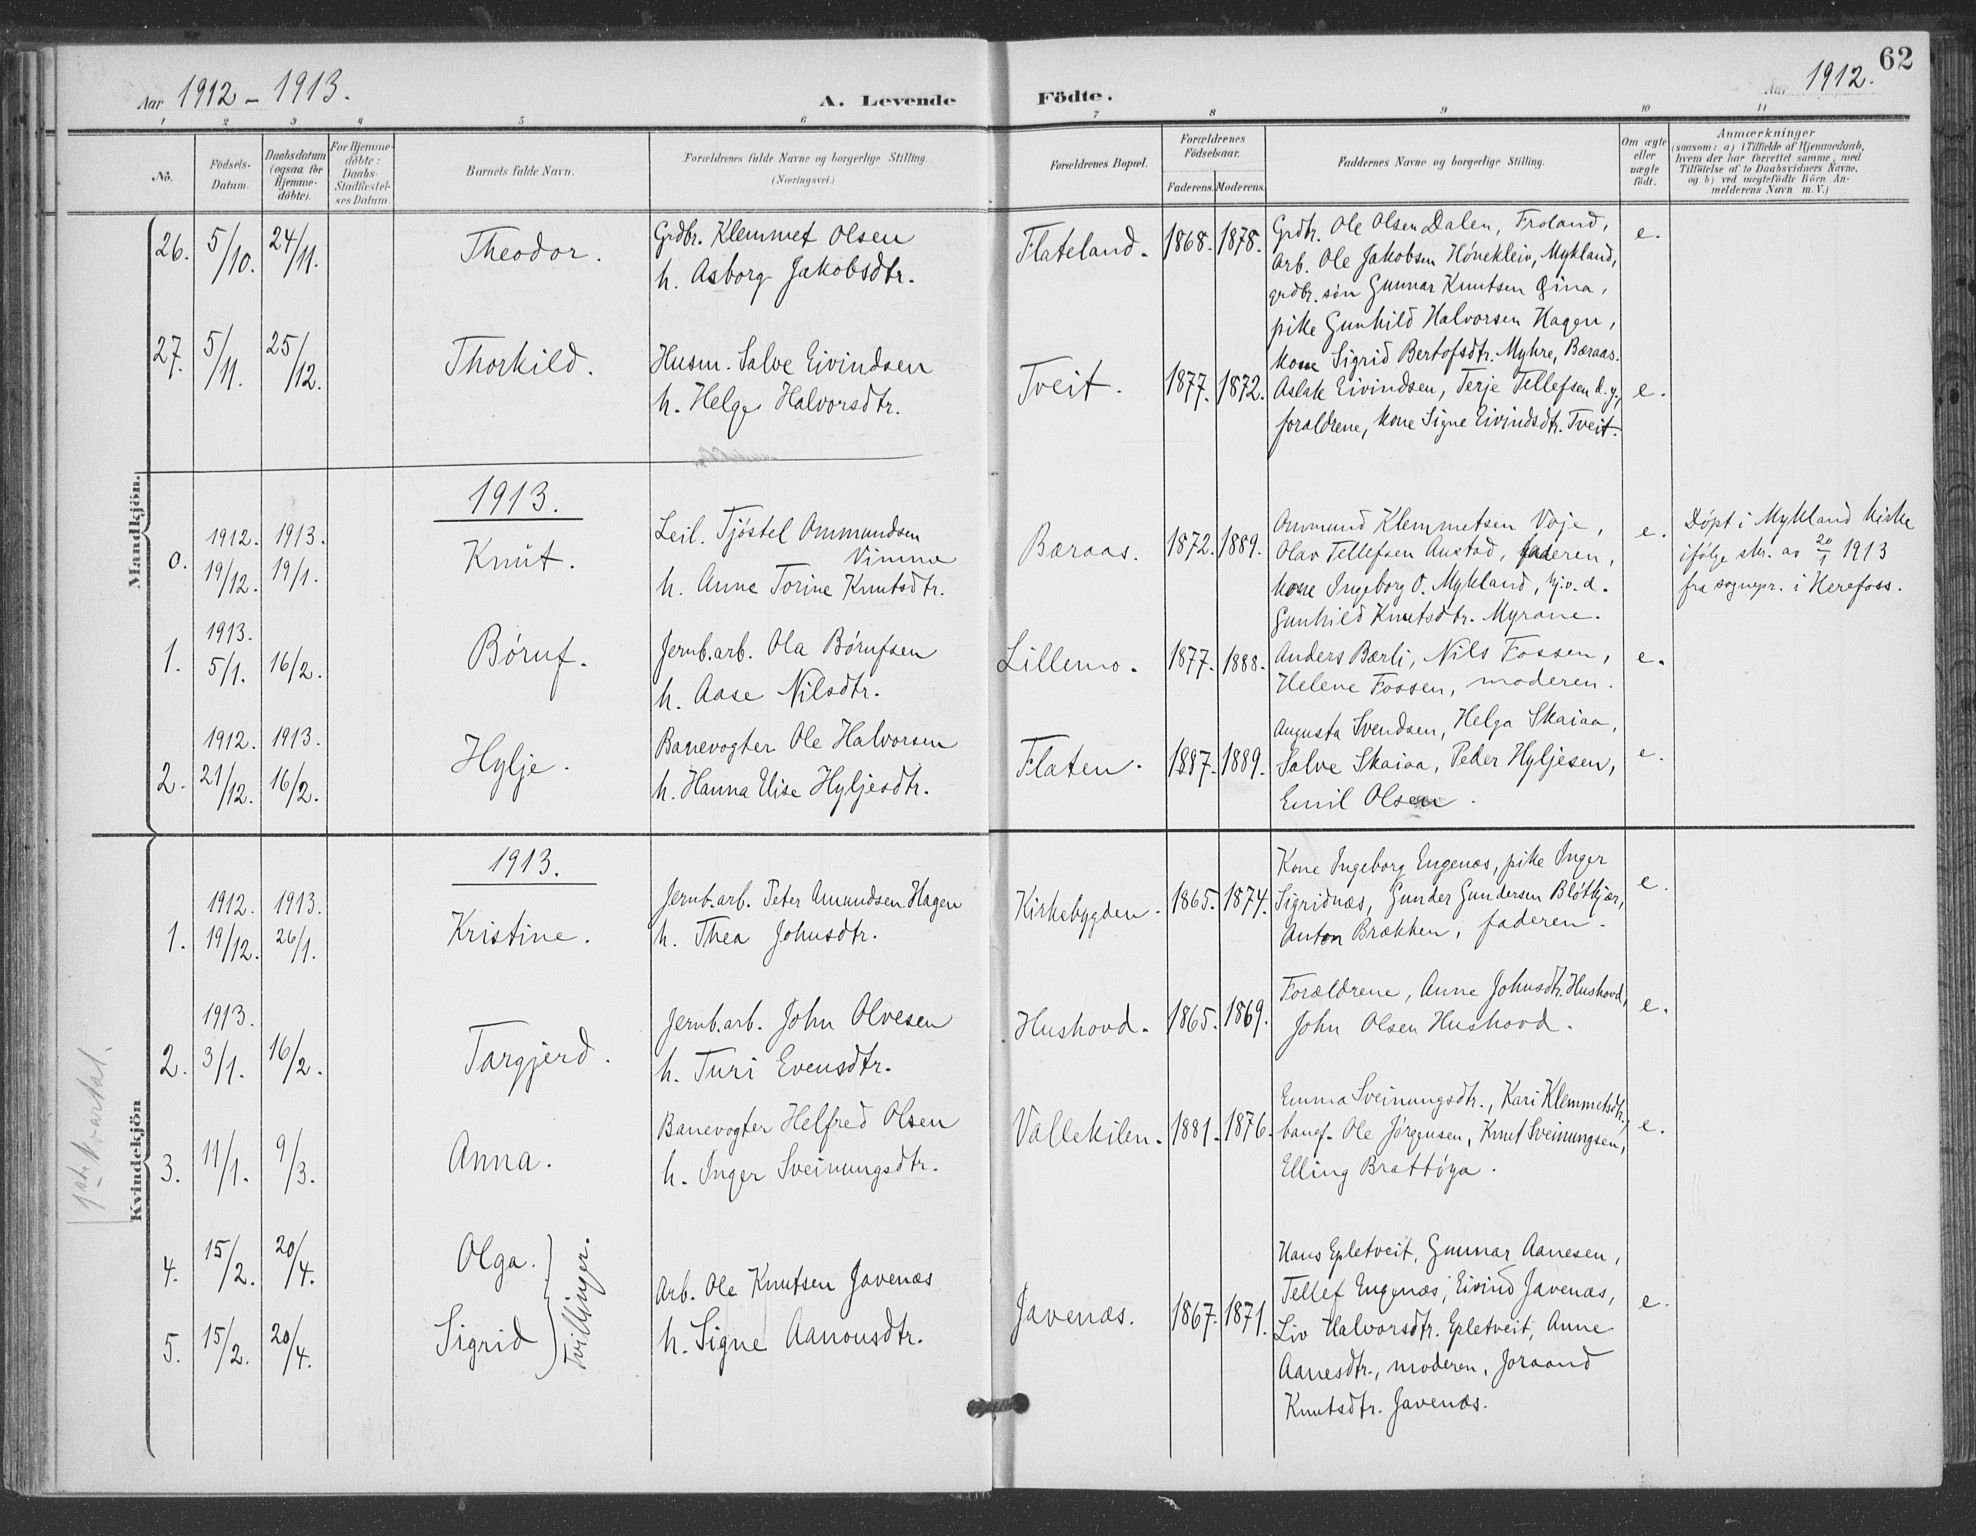 Aar 1912 – 1913.
A. Levende Födte.
Aar 1912.
62
1 2 3 4 5 6 7 8 9 10 11
No.
Födsels-Datum.
Daabsdatum (ogsaa for Hjemme-döbte).
For Hjemme-döbte: Daabs-Stadfæstel-ses Datum
Barnets fulde Navn.
Forældrenes fulde Navne og borgerlige Stilling.
(Næringsvei.)
Forældrenes Bopæl.
Forældrenes Födselsaar.
Faderens. Moderens.
Faddernes Navne og borgerlige Stilling.
Om ægte eller uægte födt.
Anmærkninger
(saasom: a) i Tilfælde af Hjemmedaab,
hvem der har forrettet samme, med
Tilföielse af to Daabsvidners Navne,
og b) ved uægtefödte Börn An-
melderens Navn m. V.)
Mandkjön.
26. 5/10. 24/11. Theodor. Grdbr. Klemmet Olsen
h. Asborg Jakobsdtr.
Flateland. 1868. 1878.
Grdbr. Ole Olsen Dalen, Froland,
Arb. Ole Jakobsen Hónekleiv, Mykland,
grdbr. són Gunnar Knutsen Gina,
pike Gunhild Halvorsen Hagen,
kone Sigrid Bertofsdtr. Myhre, Bæraas.
e.
27. 5/11. 25/12. Thorkild. Husm. Salve Eivindsen
h. Helge Halvorsdtr.
Tveit. 1877. 1872.
Aslak Eivindsen, Terje Tellefsen d.y.,
forældrene, kone Signe Eivindsdtr. Tveit.
e.
1913.
0. 1912. 19/12. 1913. 19/1. Knut. Leil. Tjöstel Ommundsen
Vimme
h. Anne Torine Knutsdtr.
Bæraas. 1872. 1889.
Ommund Klemmetsen Voje,
Olav Tellefsen Austad, faderen,
kone Ingeborg O. Mykland, tj.v. d.
Gunhild Knutsdtr. Myrane.
e.
Döpt i Mykland kirke
ifólge skr. av 20/1 1913
fra sognepr. i Herefoss.
1. 1913. 5/1. 16/2. Böruf. Jernb.arb. Ola Bórufsen
h. Aase Nilsdtr.
Lillemo. 1877. 1888.
Anders Bærli, Nils Fossen,
Helene Fossen, moderen.
e.
2. 1912. 21/12. 1913. 16/2. Hylje. Banevogter Ole Halvorsen
h. Hanna Elise Hyljesdtr.
Flaten. 1887. 1889.
Augusta Svendsen, Helga Skaiaa,
Salve Skaiaa, Peder Hyljesen,
Emil Olsen.
e.
Kvindekjön
1913.
1. 1912. 19/12. 1913. 26/1. Kristine. Jernb.arb. Peter Amundsen Hagen
h. Thea Johnsdtr.
Kirkebygden. 1865. 1874.
Kone Ingeborg Engenæs, pike Inger
Sigridnæs, Gunder Gundersen Blötkjær,
Anton Brækken, faderen.
e.
2. 1913. 3/1. 16/2. Targjerd. Jernb.arb. John Olvesen
h. Turi Evensdtr.
Hushovd. 1865. 1869.
Forældrene, Anne Johnsdtr. Hushovd,
John Olsen Hushovd.
e.
3. 11/1. 9/3. Anna. Banevogter Helfred Olsen
h. Inger Sveinungsdtr.
Vallekilen. 1881. 1876.
Emma Sveinungsdtr., Kari Klemmetsdtr.,
banef. Ole Jörgensen, Knut Sveinungsen,
Elling Brattöya.
e.
4. 15/2. 20/4. Olga.
5. 15/2. 20/4. Sigrid
Tvillinger.
Arb. Ole Knutsen Javenæs
h. Signe Aanonsdtr.
Javenæs. 1867. 1871.
Hans Epletveit, Gunnar Aanesen,
Tellef Engenæs, Eivind Javenæs,
Liv Halvorsdtr. Epletveit, Anne
Aanesdtr., moderen, Joraand
Knutsdtr. Javenæs.
e.
1ste kvartal.